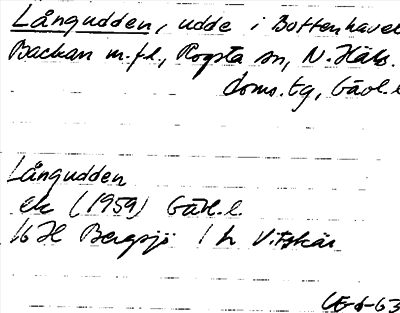 Långudden, udde i Bottenhavet
Backan m.fl., Rogsta sn, N. Häls.
doms. tg, Gävl. l
Långudden
ek (1959) Gävl. l.
16 H Bergsjö 1 h Vitskär
63